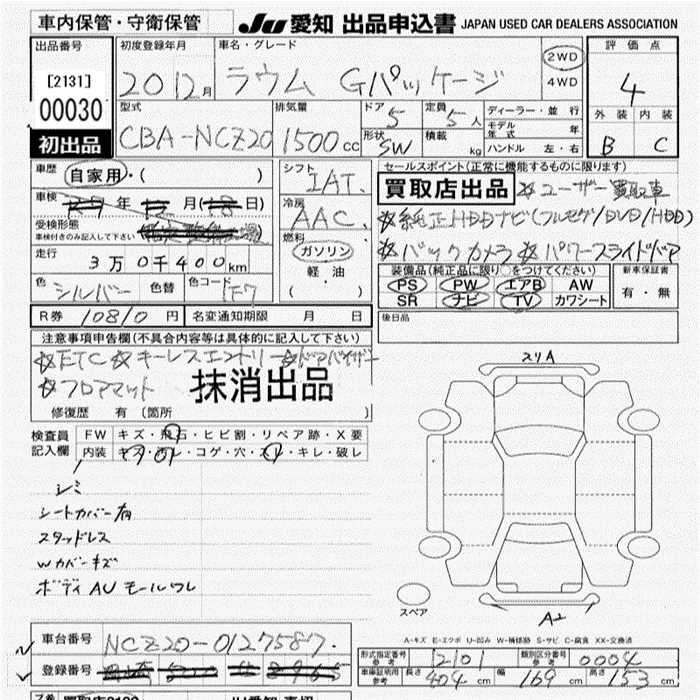 車内保管・守衛保管 JU 愛知 出品申込書 JAPAN USED CAR DEALERS ASSOCIATION
出品番号 初度登録年月 車名・グレード 評価点
[2131] 20年12月 ラウム Gパッケージ 2WD 4WD 4
00030 型式 排気量 ドア 5 定員 5人 ディーラー・並行 外装 内装
初出品 CBA-NCZ20 1500cc 形状 SW 積載 kg モデル年式 年 ハンドル 左・右 B C
車歴 自家用・( ) シフト IAT. セールスポイント(正常に機能するものに限ります)
車検 年 月( 日) 冷房 AAC. 買取店出品 ☆ユーザー買取車
受検形態 車検付きのみ記入して下さい ☆純正HDDナビ(フルセグ/DVD/HDD)
走行 3万0千400km 燃料 ガソリン 軽油 ( ) ☆バックカメラ☆パワースライドドア
色 シルバー 色替 色コード 1F7 装備品(純正品に限り○をつけてください) 新車保証書
PS PW エアB AW 有・無
SR ナビ TV カワシート
R券 10810円 名変通知期限 月 日 後日品
注意事項申告欄(不具合内容等は具体的に記入して下さい)
☆ETC☆キーレスエントリー☆ドアバイザー
☆フロアマット 抹消出品
修復歴 有 〔箇所 〕
検査員記入欄 FW キズ・飛石・ヒビ割・リペア跡・X要
内装 キズ・汚レ・コゲ・穴・スレ・キレ・破レ
シミ
シートカバー有
スタッドレス
Wカバーキズ
ボディAUモールワレ
スリA
スペア
A2
A-キズ E-エクボ U-凹み W-補修跡 S-サビ C-腐食 XX-交換済
車台番号 NCZ20-0127587.
登録番号
形式指定番号 参考 12101 類別区分番号 参考 0004
車庫証明用 参考 長さ 404cm 幅 169cm 高さ 153cm